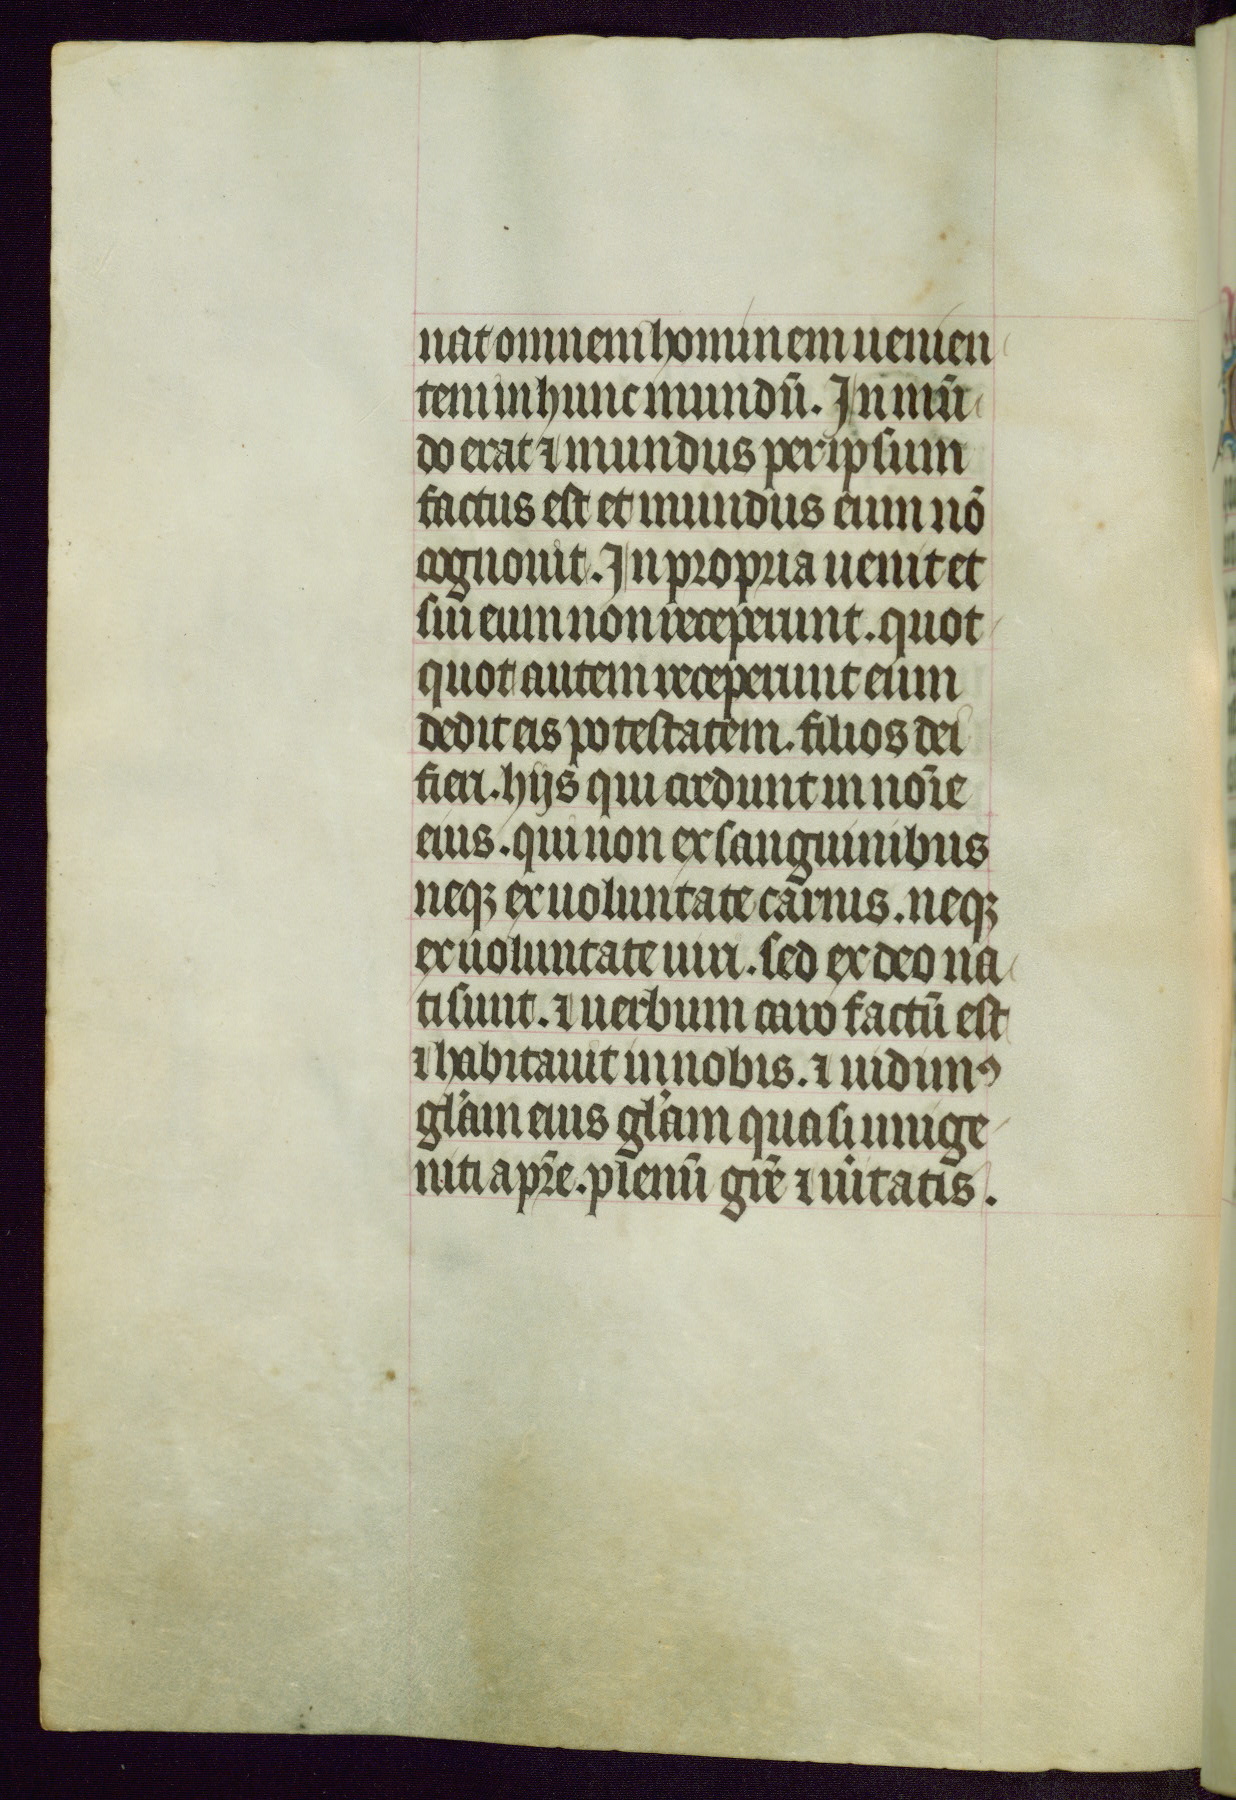 nat omnem hominem uenien
tem in hunc mundū. In mū
do erat ⁊ mundus per ipsum
factus est et mundus eum nō
cognouit. In propria uenit et
sui eum non receperunt. quot
quot autem receperunt eum
dedit eis potestatem. filios dei
fieri. hijs qui credunt in noīe
eius. qui non ex sanguinibus
neqꝫ ex uoluntate carnis. neqꝫ
ex uoluntate uiri. sed ex deo na
ti sunt. ⁊ uerbum caro factū est
⁊ habitauit in nobis. ⁊ uidimꝰ
gl'am eius gl'am quasi unige
niti a pr̄e. plenū gr̄e ⁊ ūitatis.